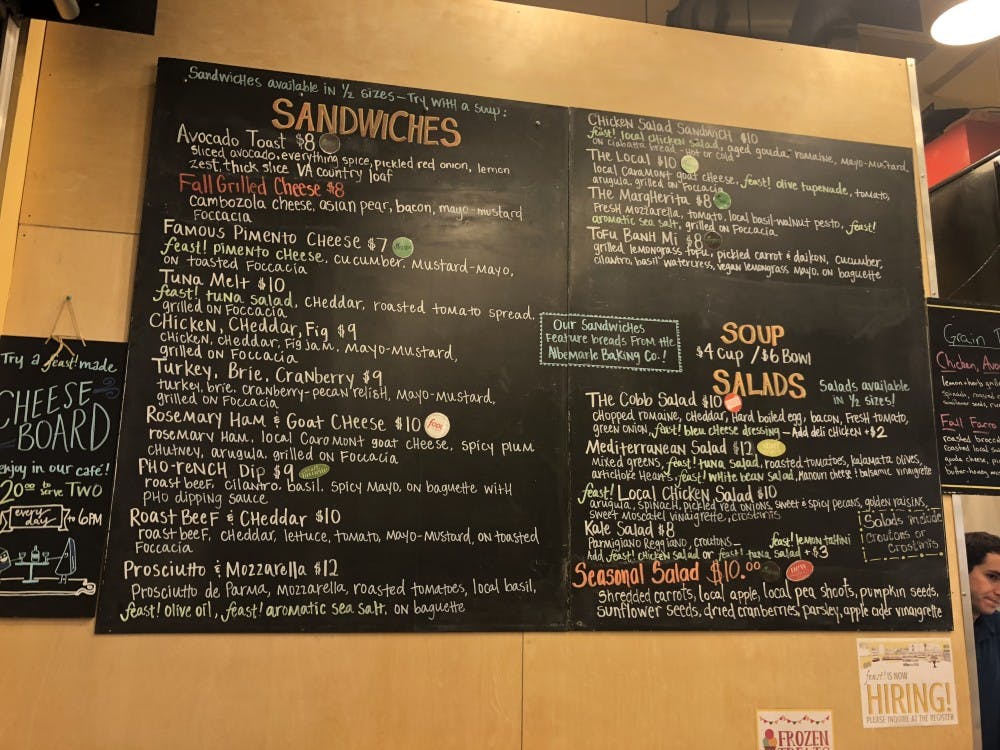 Sandwiches available in ½ sizes – Try with a soup:
SANDWICHES
Avocado Toast $8
sliced avocado, everything spice, pickled red onion, lemon
zest, thick slice VA country loaf
Fall Grilled Cheese $8
cambozola cheese, asian pear, bacon, mayo-mustard
Foccacia
Famous Pimento Cheese $7
feast! pimento cheese, cucumber, mustard-mayo,
on toasted Foccacia
Tuna Melt $10
feast! tuna salad, cheddar, roasted tomato spread,
grilled on Foccacia
Chicken, Cheddar, Fig $9
chicken, cheddar, fig jam, mayo-mustard,
grilled on Foccacia
Turkey, Brie, Cranberry $9
turkey, brie, cranberry-pecan relish, mayo-mustard,
grilled on Foccacia
Rosemary Ham & Goat Cheese $10
rosemary ham, local Caromont goat cheese, spicy plum
chutney, arugula, grilled on Foccacia
Pho-rench Dip $9
roast beef, cilantro, basil, spicy mayo, on baguette with
pho dipping sauce
Roast Beef & Cheddar $10
roast beef, cheddar, lettuce, tomato, mayo-mustard, on toasted
Foccacia
Prosciutto & Mozzarella $12
Prosciutto de Parma, mozzarella, roasted tomatoes, local basil,
feast! olive oil, feast! aromatic sea salt, on baguette
Chicken Salad Sandwich $10
feast! local chicken salad, aged gouda, romaine, mayo-mustard,
on ciabatta bread - Hot or cold
The Local $10
local Caramont goat cheese, feast! olive tapenade, tomato,
arugula, grilled on Foccacia
The Margherita $8
Fresh mozzarella, tomato, local basil-walnut pesto, feast!
aromatic sea salt, grilled on Foccacia
Tofu Banh Mi $8
grilled lemongrass tofu, pickled carrot & daikon, cucumber,
cilantro, basil, watercress, vegan lemongrass mayo, on baguette
Our Sandwiches
feature breads from the
Albemarle Baking Co.!
SOUP
$4 Cup / $6 Bowl
SALADS
Salads available
in ½ sizes!
The Cobb Salad $10
chopped romaine, cheddar, hard boiled egg, bacon, fresh tomato,
green onion, feast! bleu cheese dressing – Add deli chicken +$2
Mediterranean Salad $12
mixed greens, feast! tuna salad, roasted tomatoes, kalamata olives,
artichoke hearts, feast! white bean salad, Manouri cheese & balsamic vinaigrette
feast! Local Chicken Salad $10
arugula, spinach, pickled red onions, sweet & spicy pecans, golden raisins,
sweet moscatel vinaigrette, crostinis
Kale Salad $8
Parmigiano Reggiano, croutons — feast! lemon tahini
Add feast! chicken salad or feast! tuna salad +$3
Salads include
croutons or
crostinis
Seasonal Salad $10.00
new
shredded carrots, local apple, local pea shoots, pumpkin seeds,
sunflower seeds, dried cranberries, parsley, apple cider vinaigrette
Try a feast! made
CHEESE
BOARD
enjoy in our café!
20.00 to serve TWO
every day
to 6PM
Grain
Chicken, Avo
Fall Farro
feast! IS NOW
HIRING!
PLEASE INQUIRE AT THE REGISTER
FROZEN
TREATS